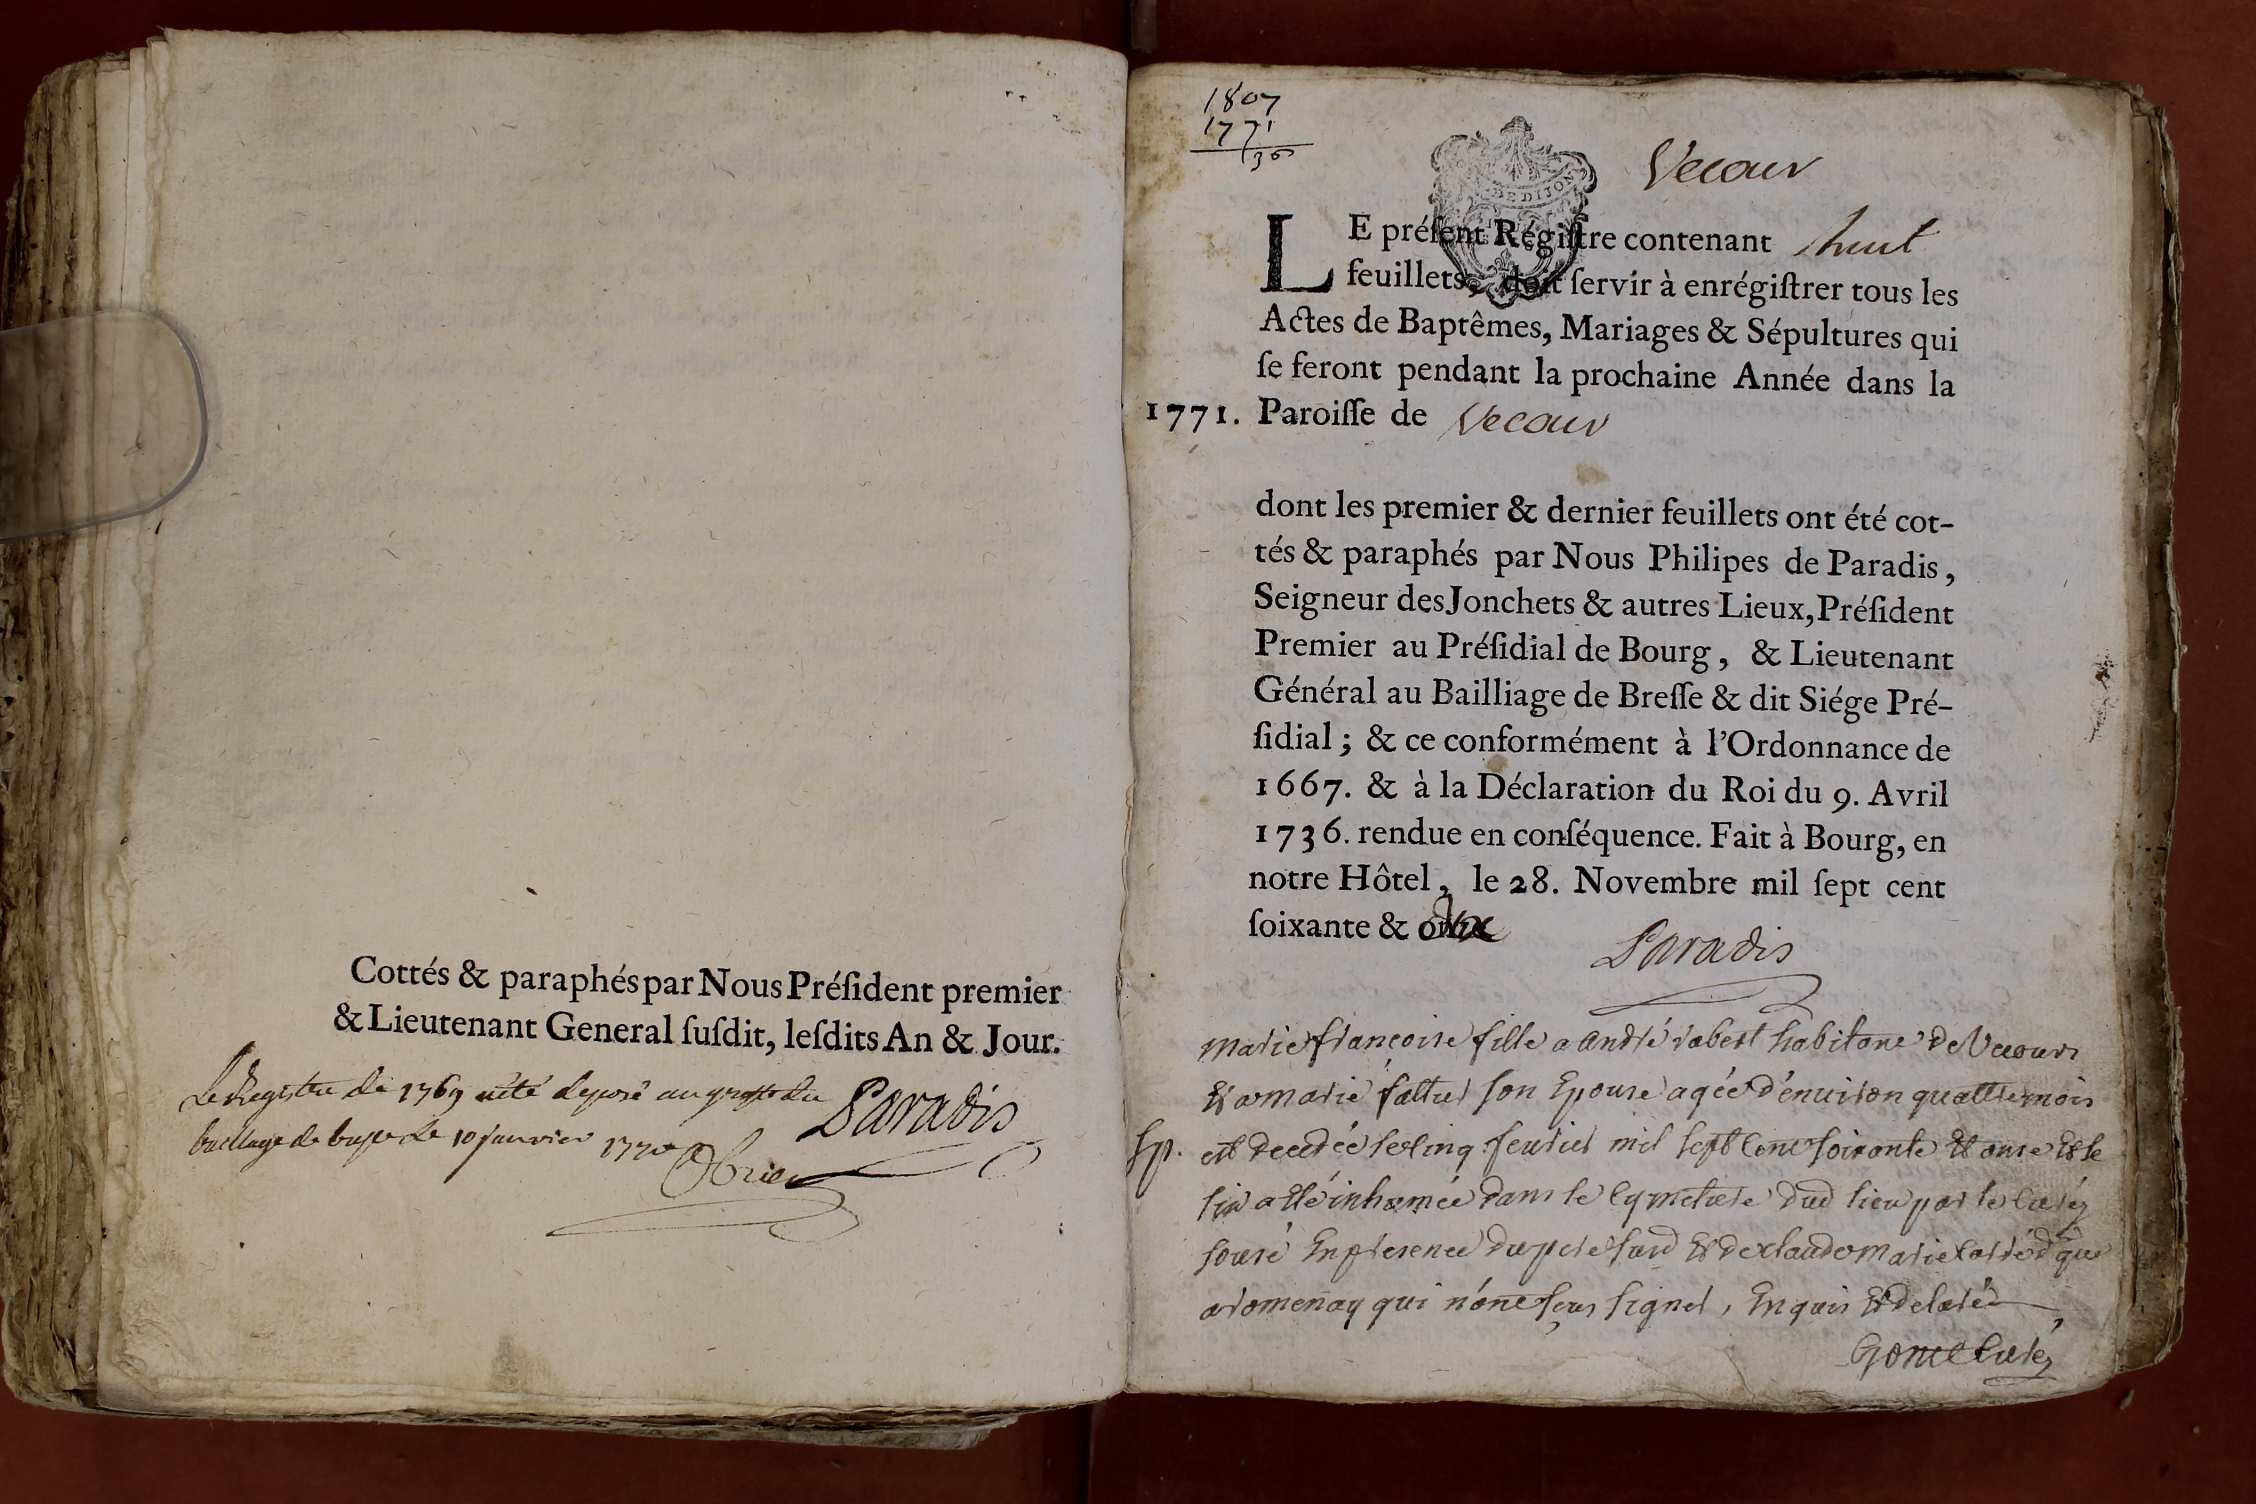 Cottés & paraphés par Nous Préſident premier
& Lieutenant General ſuſdit, leſdits An & Jour.
Le Registre de 1769 a été deposé au greffe du
bailliage de le 10 janvier 1770
Paradis
1807
1771
36
Vecour
DE DIJON
LE préſent Régiſtre contenant huit
feuillets, doit ſervir à enrégiſtrer tous les
Actes de Baptêmes, Mariages & Sépultures qui
ſe feront pendant la prochaine Année dans la
1771. Paroiſſe de Vecour
dont les premier & dernier feuillets ont été cot-
tés & paraphés par Nous Philipes de Paradis,
Seigneur des Jonchets & autres Lieux, Préſident
Premier au Préſidial de Bourg, & Lieutenant
Général au Bailliage de Breſſe & dit Siége Pré-
ſidial; & ce conformément à l'Ordonnance de
1667. & à la Déclaration du Roi du 9. Avril
1736. rendue en conſéquence. Fait à Bourg, en
notre Hôtel, le 28. Novembre mil ſept cent
ſoixante & dix
Paradis
marie françoise fille a andré robert habitant de Vecour
Et a marie son Epouse agée d'environ quattre mois
Sp. est decedée le cinq fevrier mil sept cent soixante Et onze Et le
six a été inhumée dans le cymetiere dud lieu par le curé
sousé En presence du pere susd Et de claude marie
a romenay qui n'ont sçus signer, Enquis Et
curé